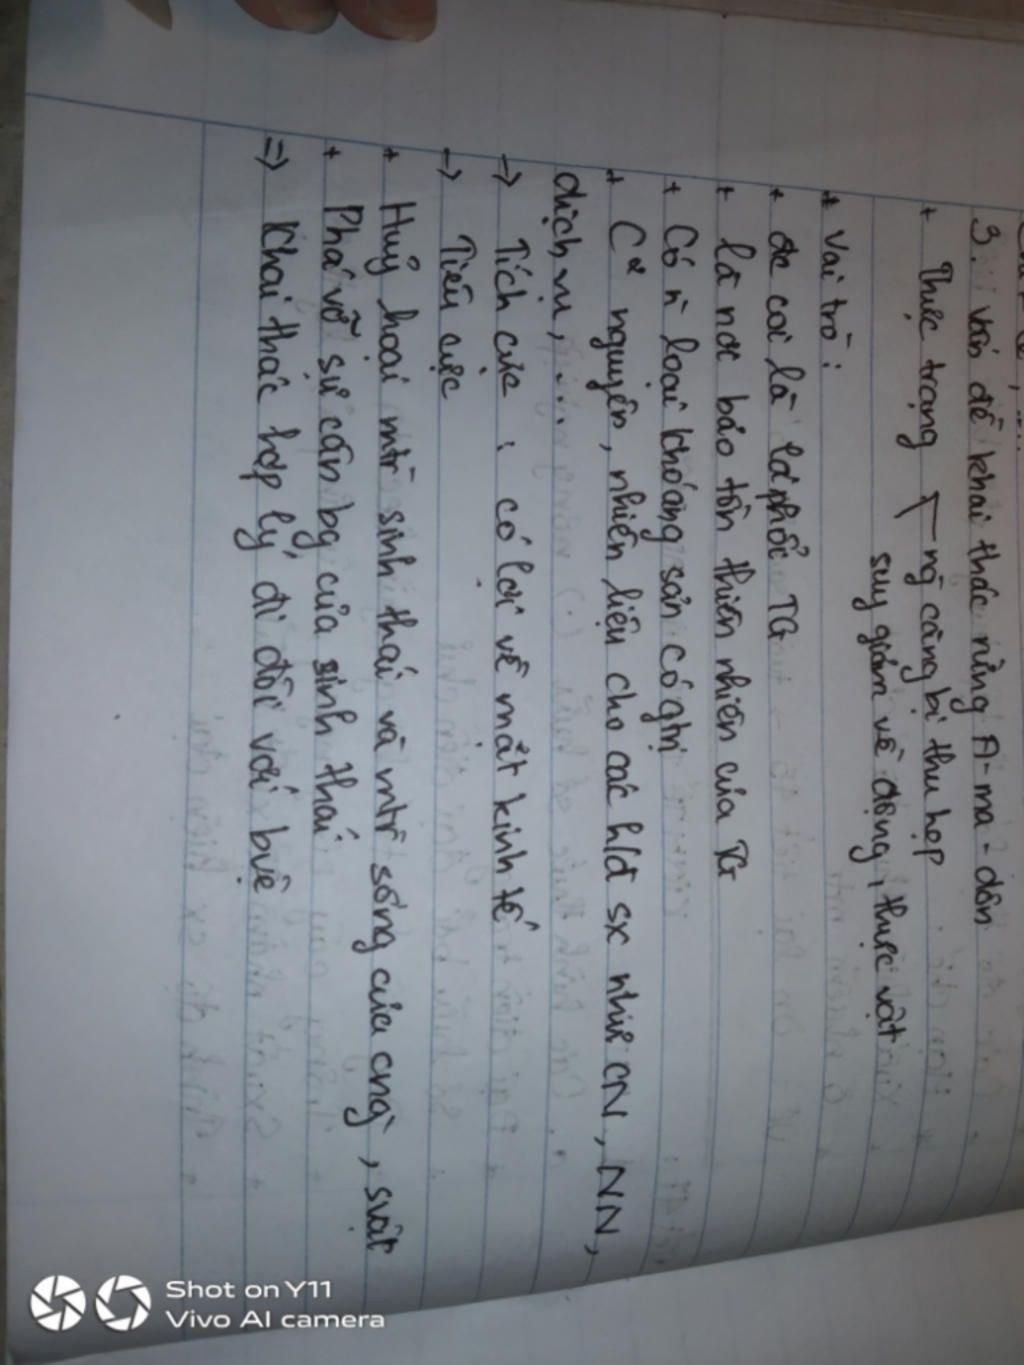 3. Vấn đề khai thác rừng A-ma-dôn
+ Thực trạng ng̀ càng bị thu hẹp
suy giảm về động, thực vật
+ Vai trò:
+ đc coi là lá phổi TG
+ là nơi bảo tồn thiên nhiên của TG
+ Có n̄ loại khoáng sản có giá trị
+ C² nguyên, nhiên liệu cho các hlđ sx như CN, NN,
dịch vụ,...
→ Tích cực: có lợi về mặt kinh tế
→ Tiêu cực
+ Huỷ hoại mtr̀ sinh thái và mtr̀ sống của cng̀, svật
+ Phá vỡ sự cân bg của sinh thái
=> Khai thác hợp lý đi đôi với bvệ
Shot on Y11
Vivo AI camera